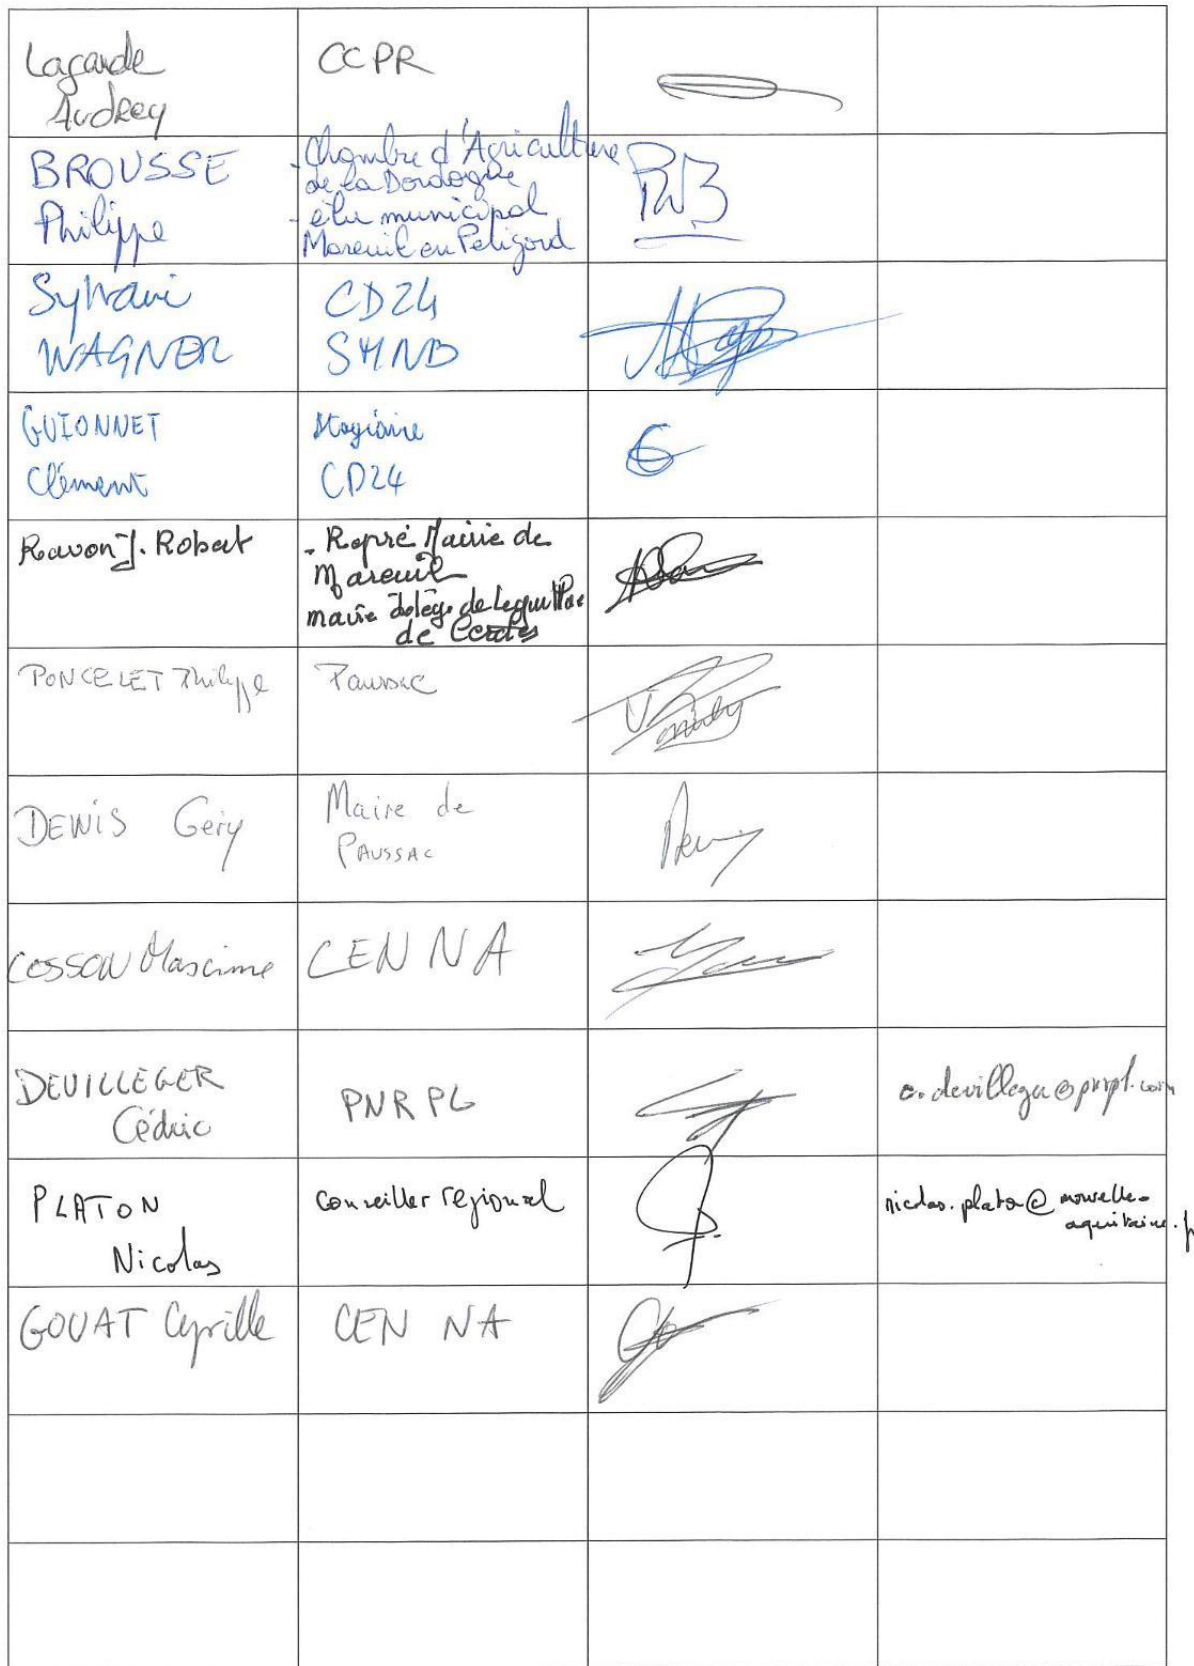 Lagarde
Audrey
CCPR
BROUSSE
Philippe
- Chambre d'Agriculture
de la Dordogne
- élu municipal
Mareuil en Périgord
Sylvain
WAGNER
CD24
SMNB
GUIONNET
Clément
Stagiaire
CD24
Ravon J. Robert
- Repré Mairie de
Mareuil
maire délég. de
de Cercles
PONCELET Philippe
Paussac
DEWIS Géry
Maire de
PAUSSAC
COSSON Maxime
CEN NA
DEVILLEGER
Cédric
PNR PL
c.devilleger@pnrpl.com
PLATON
Nicolas
Conseiller régional
nicolas.platon@nouvelle-
aquitaine.f
GOUAT Cyrille
CEN NA